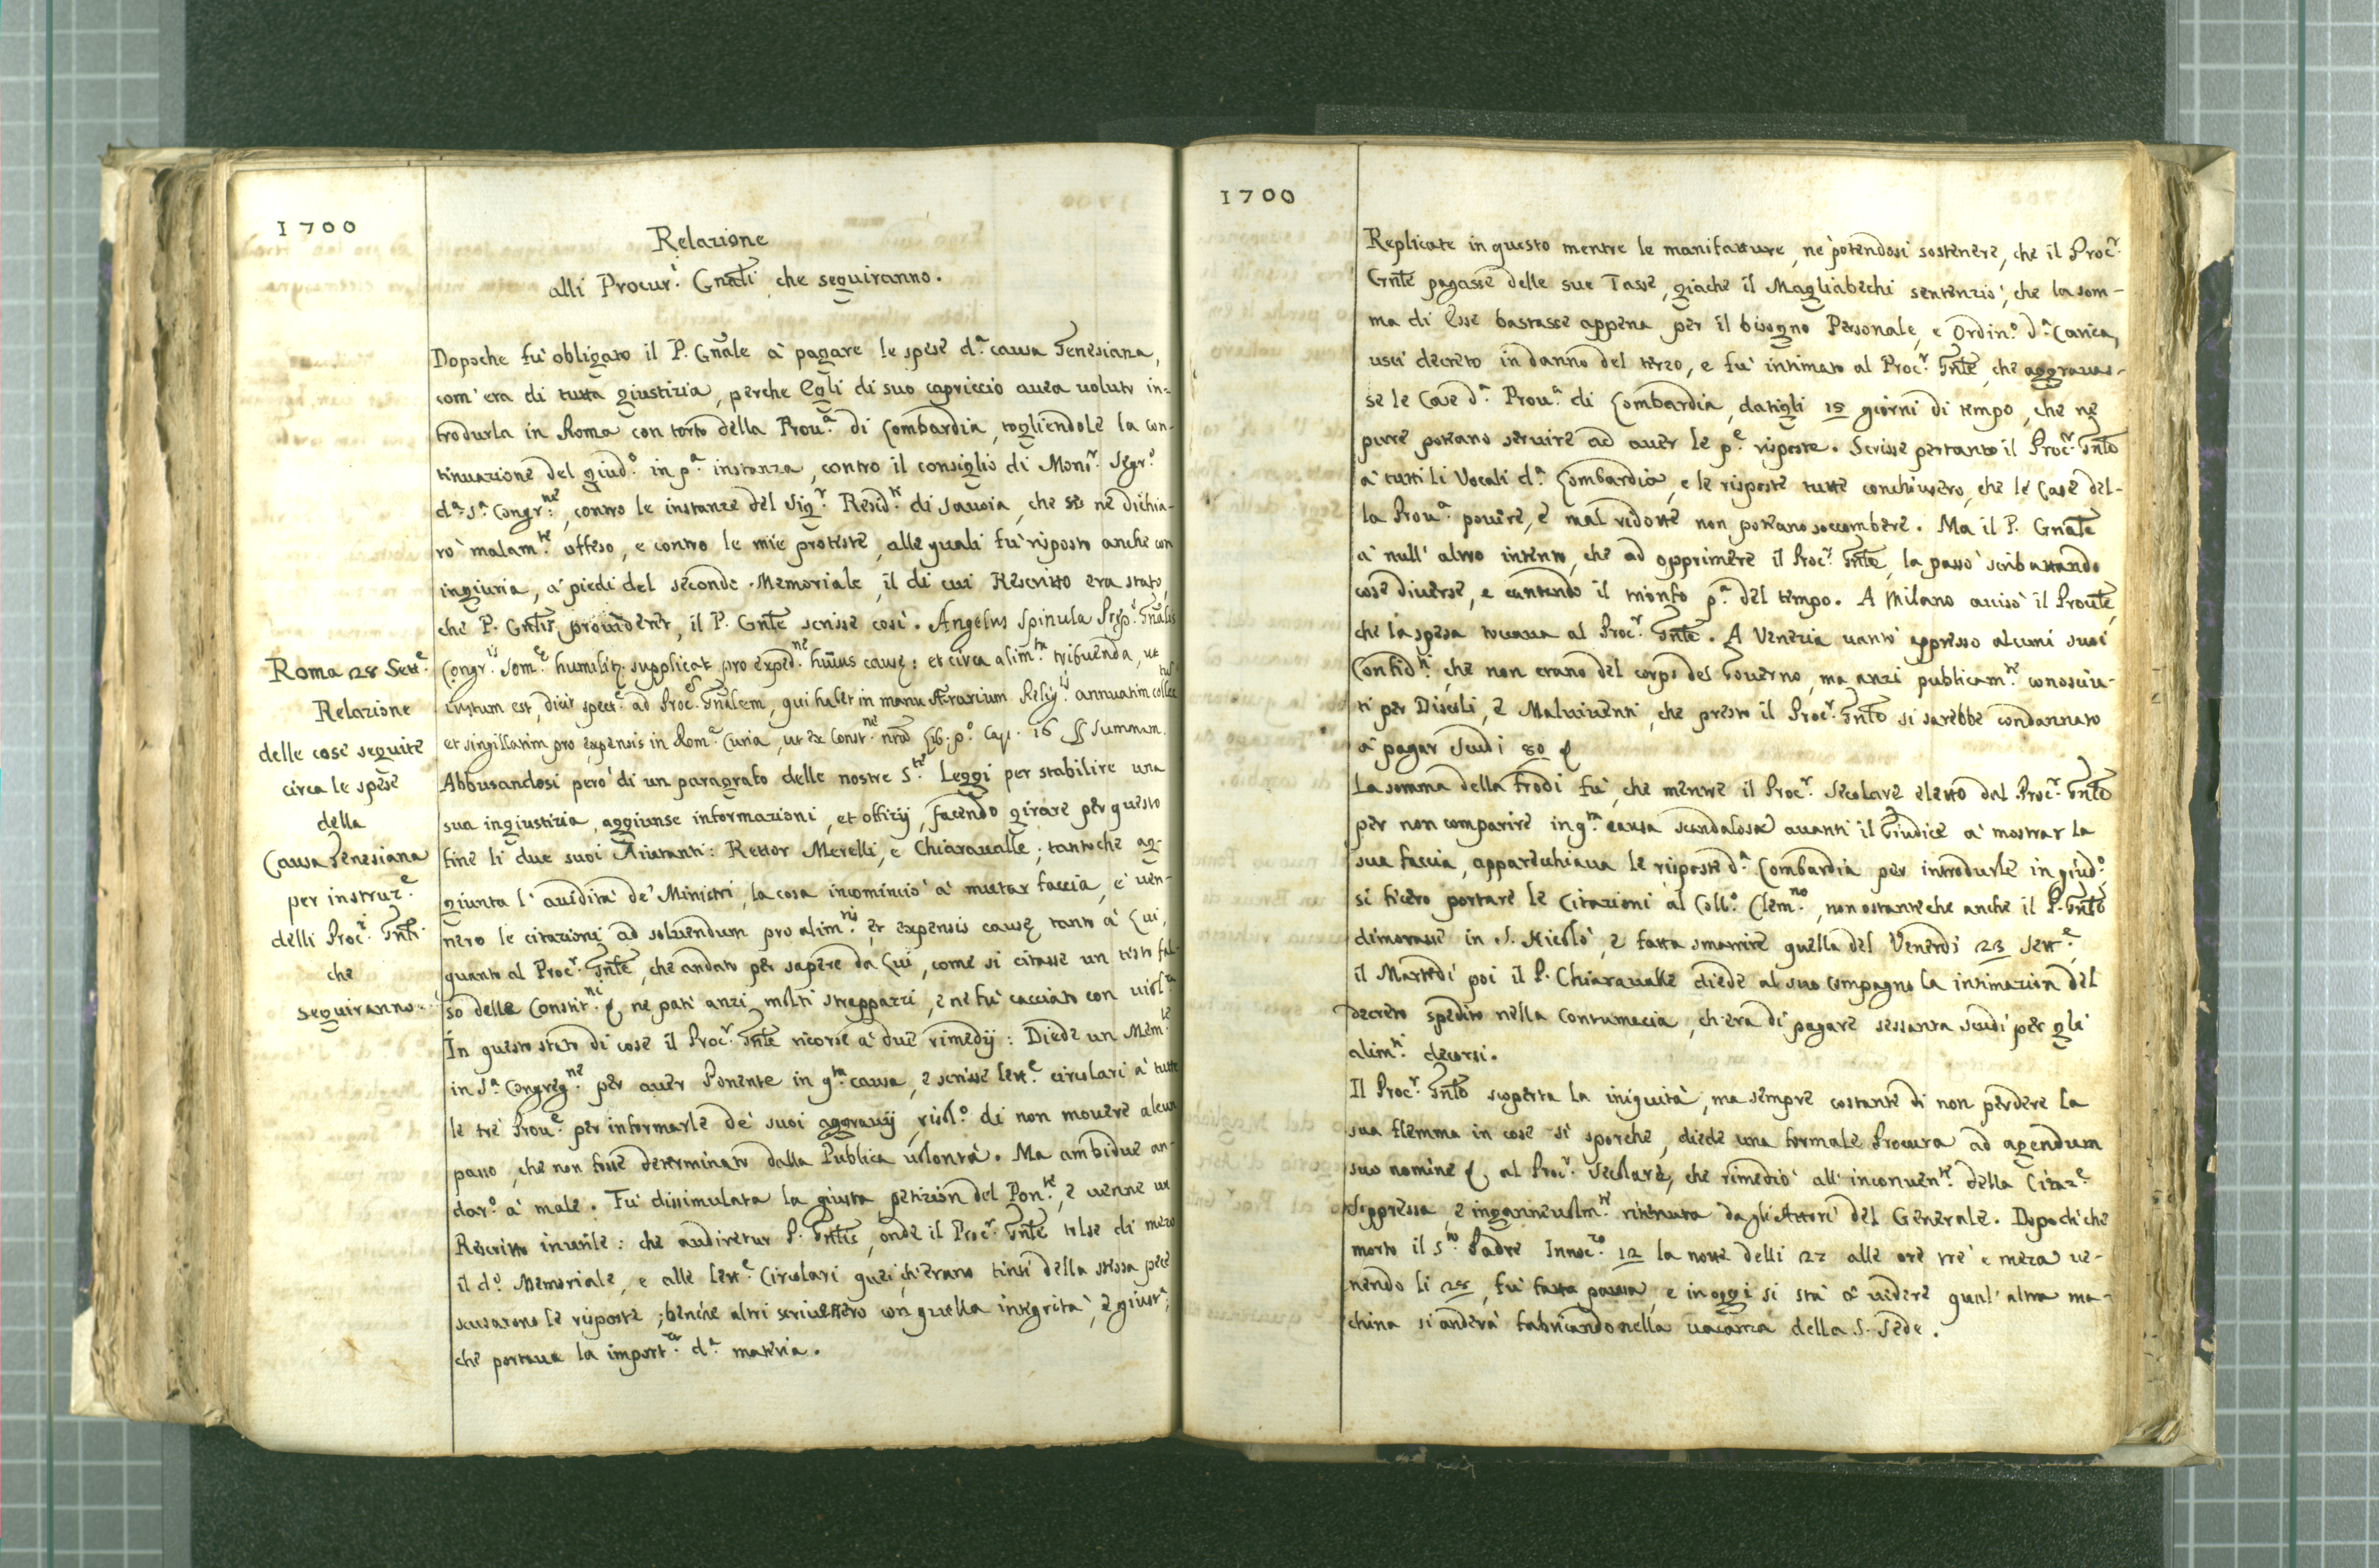 1700
Relazione
alli Procur.i Gnãli che seguiranno.
Dopoche fù obligato il P. Gñale à pagare le spese d.a causa Genesiana,
com' era di tutta giustizia, perche Egli di suo capriccio auea uoluto in=
trodurla in Roma con torto della Prou.a di Lombardia, togliendole la con-
tinuazione del giud.o in p.a instanza, contro il consiglio di Mons.r Segr.o
d.a S.a Congr.ne, contro le instanze del Sig.r Resid.te di Sauoia, che se ne dichia-
rò malam.te offeso, e contro le mie proteste, alle quali fù risposto anche con
ingiuria, a' piedi del secondo Memoriale, il di cui Rescritto era stato,
che P. Gntis prouideret, il P. Gnte scrisse così. Angelus Spinula Prep.s Gnalis
Congr.is Som.e humilit. supplicat pro exped.ne huius causę: et circa alim.ta tribuenda, ut
iustum est, dicit spect.e ad Proc. Gnalem, qui habet in manu Ærarium annuatim
et singillatim pro expensis in Rom.a Curia, ut ex Const. nris Lib. p.o Cap. 16 § Summam.
Abbusandosi però di un paragrafo delle nostre S.te Leggi per stabilire una
sua ingiustizia, aggiunse informazioni, et offizij, facendo girare per questo
fine li due suoi Aiutanti: Rettor Merelli, e Chiaraualle; tantoche ag-
giunta l' auidità de' Ministri, la cosa incominciò à mutar faccia, e uen-
nero le citazioni ad soluendum pro alim.tis, et expensis causę, tanto à Lui,
quanto al Proc.r Gnte, che andato per sapere da Lui, come si citasse un testo fal-
so delle Constit.ni &, ne patì anzi molti strappazzi, e ne fù cacciato con uiol.za
In questo stato di cose il Proc.r Gnte ricorse à due rimedij: Diede un Mem.le
in S.a Congreg.ne per auer Ponente in q.ta causa, e scrisse lett.e circolari à tutte
le trè Prou.e per informarle de' suoi aggrauij, risol.o di non mouere alcun
passo, che non fosse determinato dalla Publica uolontà. Ma ambidue an-
dar.o à male. Fù dissimulata la giusta petizion del Pon.te, e uenne un
Rescritto inutile: che audiretur P. Gntis, onde il Proc.r Gnte tolse di mezo
il d.o Memoriale, e alle lett.e Circolari quei, ch'erano tinti della stessa pece
scusarono le risposte; benche altri scriuessero con quella integrità, e giust.a,
che portaua la import.za d.a materia.
Roma 28 Sett.e
Relazione
delle cose seguite
circa le spese
della
Causa Genesiana
per instruz.e
delli Proc.i Gnti
che
seguiranno.
1700
Replicate in questo mentre le manifatture, ne potendosi sostenere, che il Proc.r
Gnte pagasse delle sue Tasse, giache il Magliabechi sentenziò, che la som-
ma di Esse bastasse appena per il bisogno Personale, e Ordin.o d.a Carica,
uscì decreto in danno del terzo, e fù intimato al Proc.r Gnte, che aggrauas-
se le Case d.a Prou.a di Lombardia, datigli 15 giorni di tempo, che ne
pure poteano seruire ad auer le p.e risposte. Scrisse pertanto il Proc.r Gnte
à tutti li Vocali d.a Lombardia, e le risposte tutte conchiusero, che le Case del-
la Prou.a pouere, e mal ridotte non poteano soccombere. Ma il P. Gnale
à null' altro intento, che ad opprimere il Proc.r Gnte, la passò scribattando
cose diuerse, e cantando il trionfo p.a del tempo. A Milano auisò il Proule,
che la spesa toccaua al Proc.r Gnte. A Venezia uantò appresso alcuni suoi
Confid.ti, che non erano del corpo del Gouerno, ma anzi publicam.te conosciu-
ti per Discoli, e Maluiuenti, che presto il Proc.r Gnte si sarebbe condannato
à pagar scudi 80 &
La somma della Frodi fù, che mentre il Proc.r Secolare eletto dal Proc.r Gnte
per non comparire in q.ta causa scandalosa auanti il Giudice à mostrar la
sua faccia, apparecchiaua le risposte d.a Lombardia per introdurle in giud.o,
si fecero portare le Citazioni al Coll.o Clem.no, non ostante che anche il P. Gnte
dimorasse in S. Nicolò, e fatta smarrire quella del Venerdì 23 Sett.e,
il Martedì poi il P. Chiaraualle diede al suo Compagno la intimazion del
decreto spedito nella Contumacia, ch'era di pagare sessanta scudi per gli
alim.ti decorsi.
Il Proc.r Gnte scoperta la iniquità, ma sempre costante di non perdere la
sua flemma in cose sì sporche, diede una formale Procura ad agendum
suo nomine &, al Proc.r Secolare, che rimediò all' inconuen.te della Citaz.e
suppressa, e ingannevolm.te ritenuta dagli Attori del Generale. Dopo di che
morto il S.to Padre Innoc.zo 12 la notte delli 27 alle ore trè e meza ue-
nendo li 28, fù fatta pausa, e in oggi si stà à uidere qual' altra ma-
china si anderà fabricando nella uacanza della S. Sede.